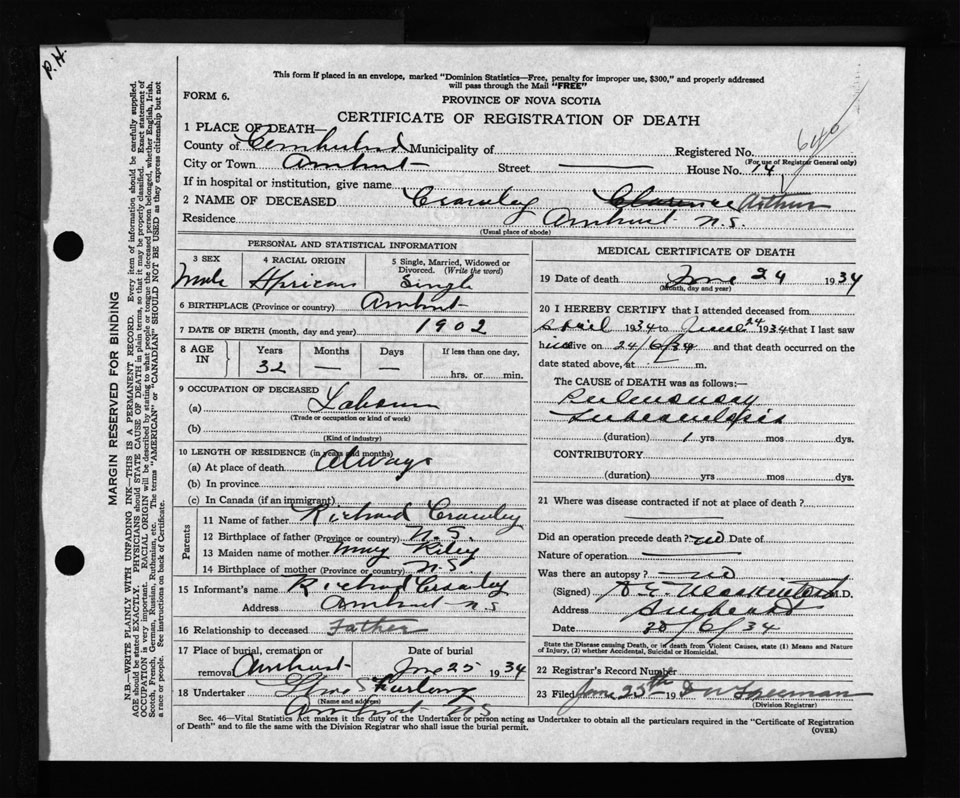 P.H.
This form if placed in an envelope, marked "Dominion Statistics—Free, penalty for improper use, $300," and properly addressed
will pass through the Mail "FREE"
FORM 6.
PROVINCE OF NOVA SCOTIA
CERTIFICATE OF REGISTRATION OF DEATH
1 PLACE OF DEATH—
County of Cumberland Municipality of Registered No. 640
(For use of Registrar General only)
City or Town Amherst Street — House No. 14
If in hospital or institution, give name
2 NAME OF DECEASED Crawley Clarence Arthur
Residence Amherst N.S.
(Usual place of abode)
PERSONAL AND STATISTICAL INFORMATION
3 SEX 4 RACIAL ORIGIN 5 Single, Married, Widowed or
Divorced. (Write the word)
Male African Single
6 BIRTHPLACE (Province or country) Amherst
7 DATE OF BIRTH (month, day and year) 1902
8 AGE IN Years Months Days If less than one day,
32 — — hrs. or min.
9 OCCUPATION OF DECEASED
(a) Laborer
(Trade or occupation or kind of work)
(b)
(Kind of industry)
10 LENGTH OF RESIDENCE (in years and months)
(a) At place of death Always
(b) In province
(c) In Canada (if an immigrant)
Parents
11 Name of father Richard Crawley
12 Birthplace of father (Province or country) N.S.
13 Maiden name of mother May Riley
14 Birthplace of mother (Province or country) N.S.
15 Informant's name Richard Crawley
Address Amherst N.S.
16 Relationship to deceased Father
17 Place of burial, cremation or Date of burial
removal Amherst June 25 1934
18 Undertaker Furlong
(Name and address)
Amherst N.S.
MEDICAL CERTIFICATE OF DEATH
19 Date of death June 24 1934
(Month, day and year)
20 I HEREBY CERTIFY that I attended deceased from
April 1934 to June 24 1934 that I last saw
h alive on 24/6/34 and that death occurred on the
date stated above, at m.
The CAUSE of DEATH was as follows:—
Pulmonary
Tuberculosis
(duration) 1 yrs. mos. dys.
CONTRIBUTORY
(duration) yrs. mos. dys.
21 Where was disease contracted if not at place of death?
Did an operation precede death? no Date of
Nature of operation
Was there an autopsy? no
(Signed) M.D.
Address Amherst
Date /6/34
State the Disease causing Death, or in death from Violent Causes, state (1) Means and Nature
of Injury, (2) whether Accidental, Suicidal or Homicidal.
22 Registrar's Record Number
23 Filed June 25th 19 Freeman
(Division Registrar)
Sec. 46—Vital Statistics Act makes it the duty of the Undertaker or person acting as Undertaker to obtain all the particulars required in the "Certificate of Registration
of Death" and to file the same with the Division Registrar who shall issue the burial permit.
(OVER)
MARGIN RESERVED FOR BINDING
N.B.—WRITE PLAINLY WITH UNFADING INK—THIS IS A PERMANENT RECORD. Every item of information should be carefully supplied.
AGE should be stated EXACTLY. PHYSICIANS should STATE CAUSE OF DEATH in plain terms, so that it may be properly classified. Exact statement of
OCCUPATION is very important. RACIAL ORIGIN will be described by stating to what people or tongue the deceased person belonged, whether English, Irish,
Scotch, French, German, Russian, Ruthenian, etc. The terms "AMERICAN" or "CANADIAN" SHOULD NOT BE USED as they express citizenship but not
a race or people. See instructions on back of Certificate.